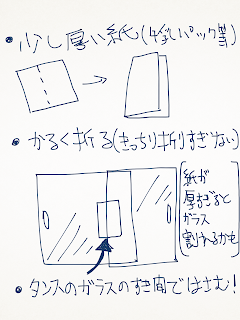 • 少し厚い紙(牛乳パック等)
• かるく折る(きっちり折りすぎない)
紙が
厚すぎると
ガラス
割れるかも
• タンスのガラスのすき間ではさむ!